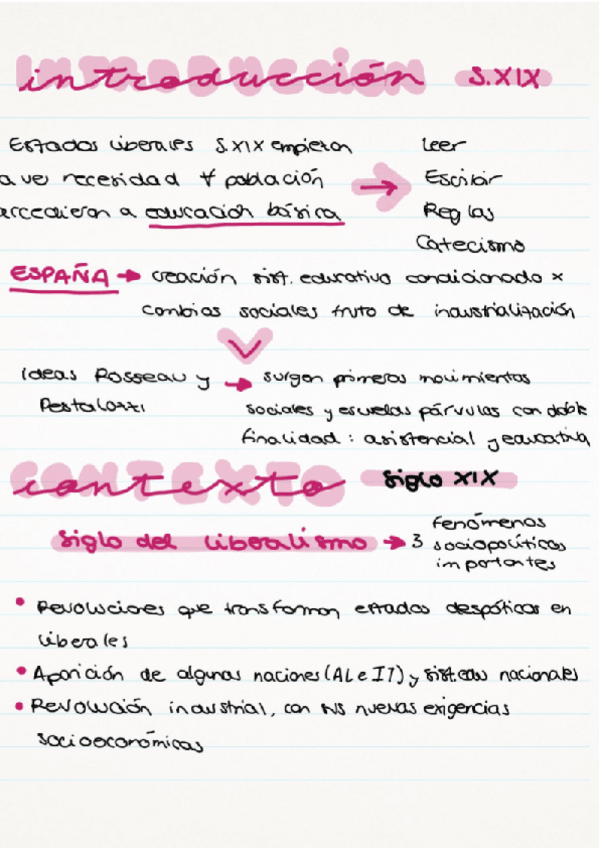 introducción S.XIX
Estados liberales S.XIX empiezan
a ver necesidad ∀ población
accedieran a educación básica
→ Leer
Escribir
Reglas
Catecismo
ESPAÑA → creación sist. educativo condicionado x
cambios sociales fruto de industrialización
Ideas Rosseau y
Pestalozzi
→ surgen primeros movimientos
sociales y escuelas párvulos con doble
finalidad: asistencial y educativa
contexto siglo XIX
siglo del liberalismo → 3 fenómenos
sociopolíticos
importantes
• Revoluciones que transforman estados despóticos en
liberales
• Aparición de algunas naciones (AL e IT) y sistemas nacionales
• Revolución industrial, con sus nuevas exigencias
socioeconómicas